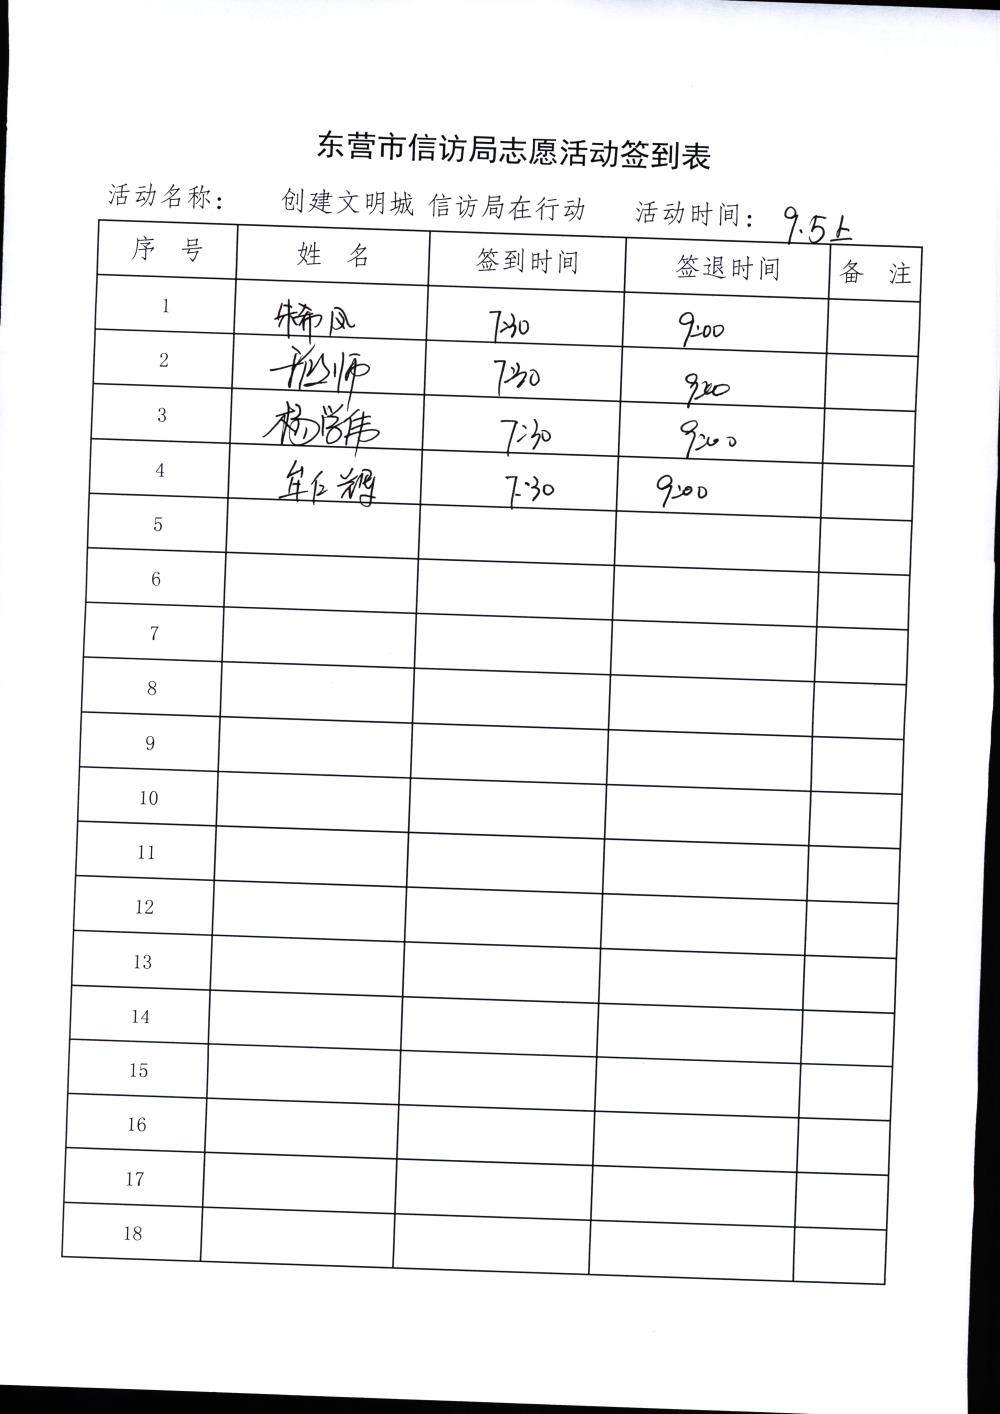 东营市信访局志愿活动签到表
活动名称： 创建文明城 信访局在行动 活动时间： 9.5上
序 号 姓 名 签到时间 签退时间 备 注
1 朱希凤 7:30 9:00
2 7:30 9:00
3 杨学伟 7:30 9:00
4 牟仁 7:30 9:00
5
6
7
8
9
10
11
12
13
14
15
16
17
18